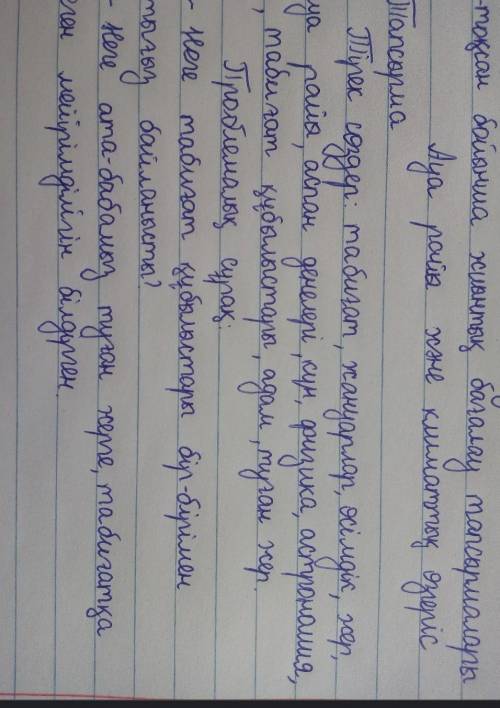 -тоқсан бойынша жиынтық бағалау тапсырмалары
Ауа райы және климаттық өзгеріс
Тапсырма
Тірек сөздер: табиғат, жануарлар, өсімдік, жер,
уа райы, аспан денелері, күн, физика, астрономия,
, табиғат құбылыстары, адам, туған жер.
Проблемалық сұрақ:
- Неге табиғат құбылыстары бір-бірімен
тығыз байланысты?
- Неге ата-бабамыз туған жерге, табиғатқа
еген мейірімділігін білдірген.